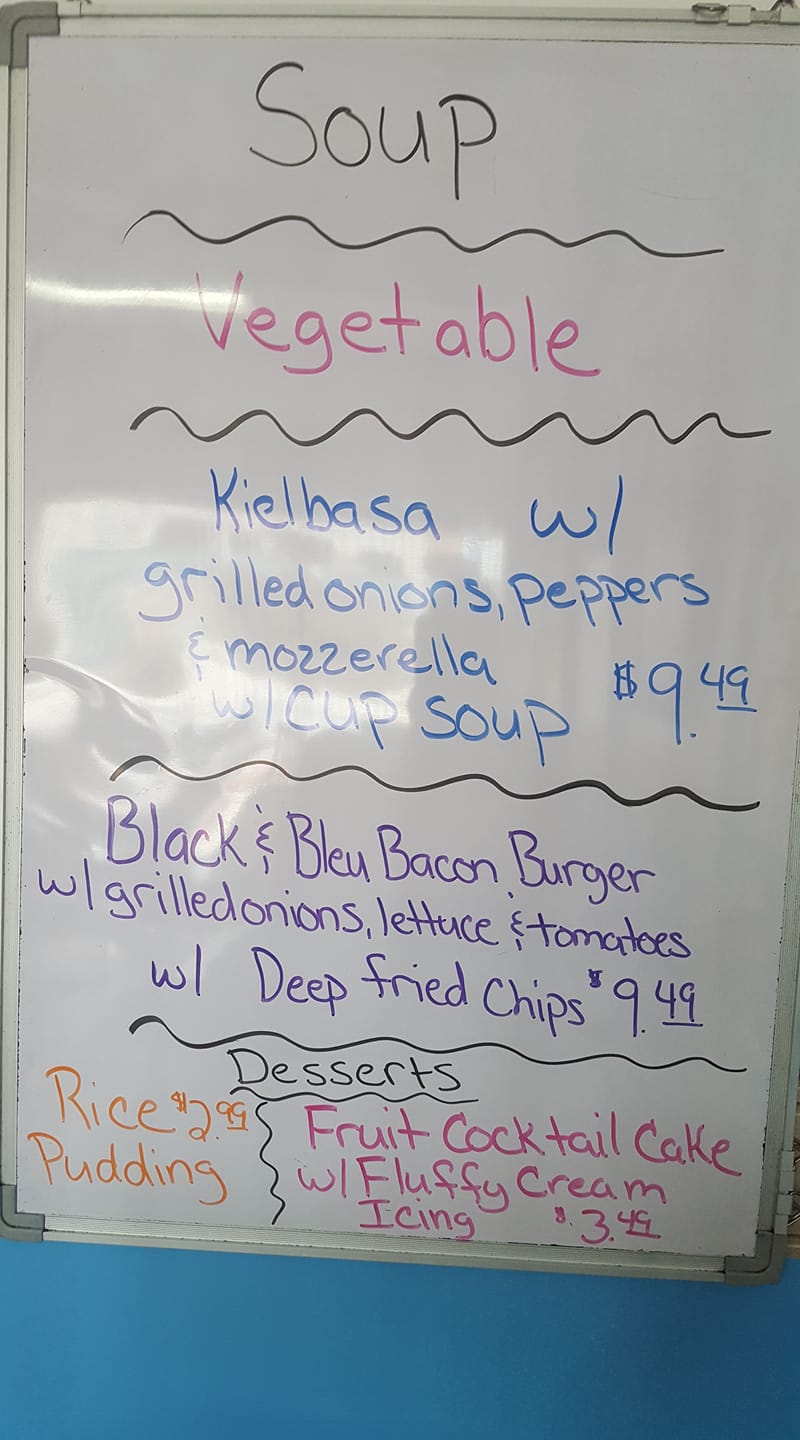 Soup
Vegetable
Kielbasa w/
grilled onions, peppers
& mozzerella
w/ cup soup $9.49
Black & Bleu Bacon Burger
w/ grilled onions, lettuce & tomatoes
w/ Deep fried Chips $9.49
Desserts
Rice $2.99
Pudding
Fruit Cocktail Cake
w/ Fluffy Cream
Icing $3.49